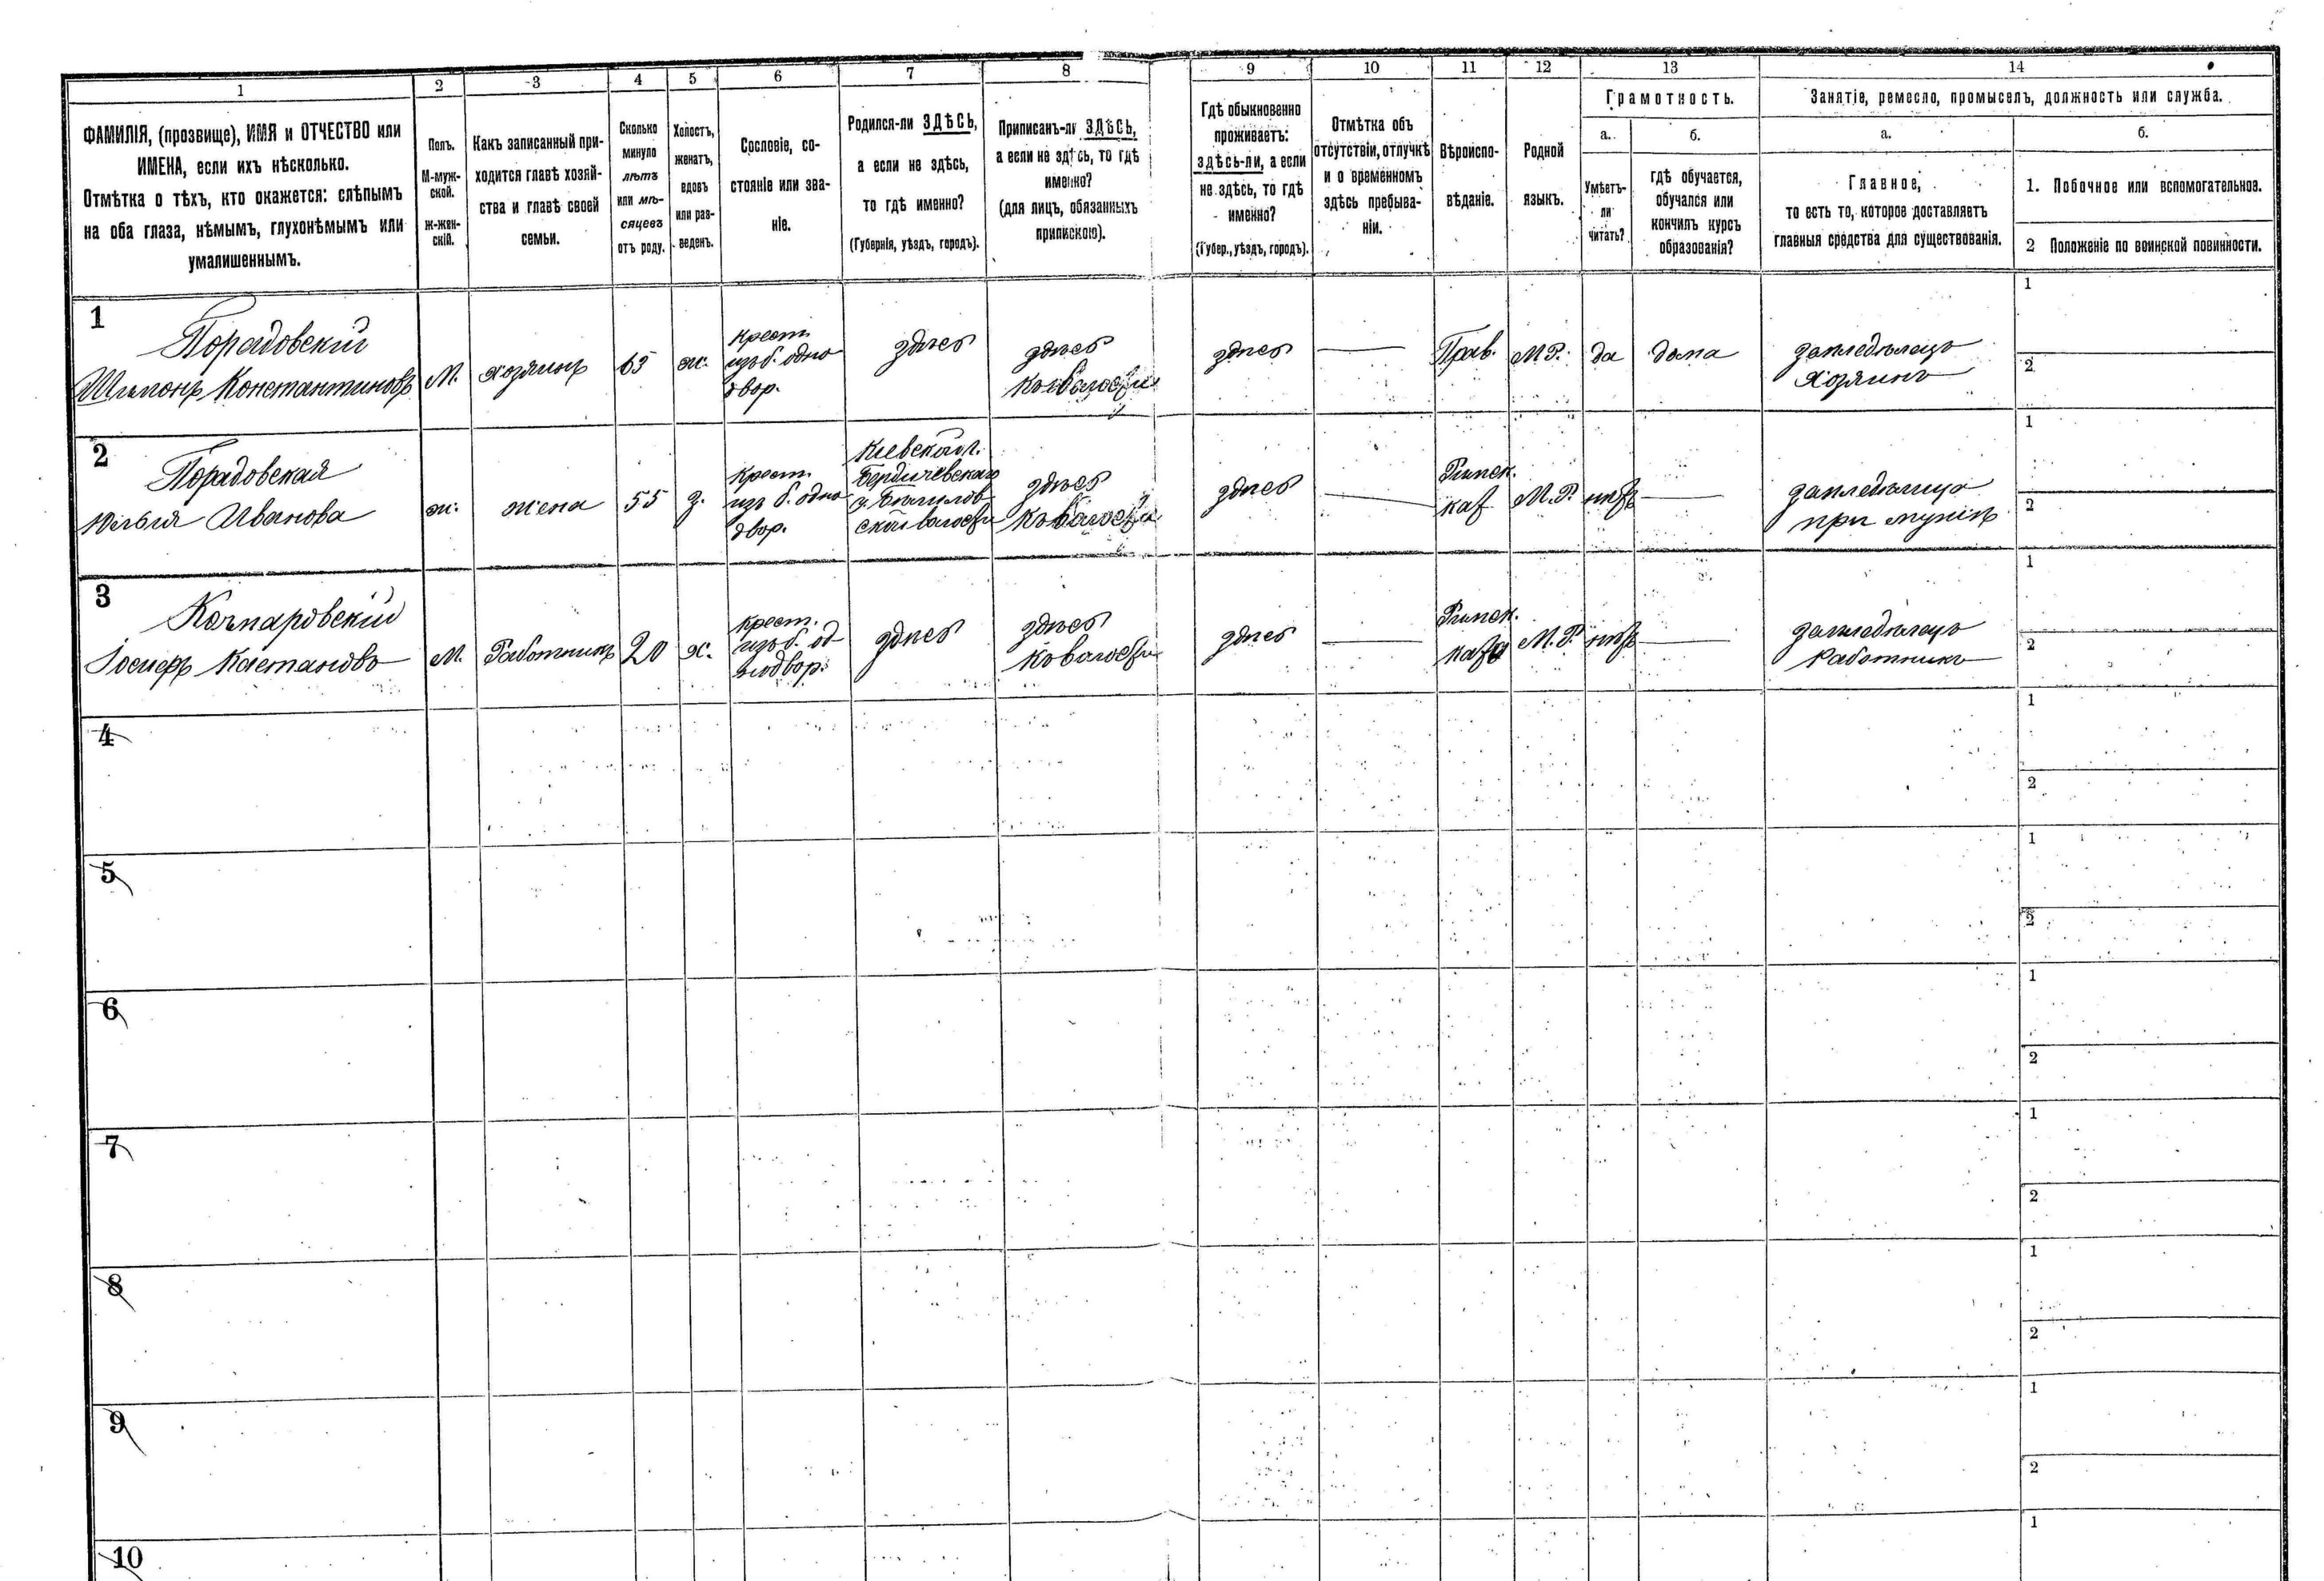 1 2 3 4 5 6 7 8 9 10 11 12 13 14
ФАМИЛІЯ, (прозвище), ИМЯ и ОТЧЕСТВО или
ИМЕНА, если ихъ нѣсколько.
Отмѣтка о тѣхъ, кто окажется: слѣпымъ
на оба глаза, нѣмымъ, глухонѣмымъ или
умалишеннымъ.
Полъ.
М-муж-
ской.
ж-жен-
скій.
Какъ записанный при-
ходится главѣ хозяй-
ства и главѣ своей
семьи.
Сколько
минуло
лѣтъ
или мѣ-
сяцевъ
отъ роду.
Холостъ,
женатъ,
вдовъ
или раз-
веденъ.
Сословіе, со-
стояніе или зва-
ніе.
Родился-ли ЗДѢСЬ,
а если не здѣсь,
то гдѣ именно?
(Губернія, уѣздъ, городъ).
Приписанъ-ли ЗДѢСЬ,
а если не здѣсь, то гдѣ
именно?
(для лицъ, обязанныхъ
припискою).
Гдѣ обыкновенно
проживаетъ:
здѣсь-ли, а если
не здѣсь, то гдѣ
именно?
(Губер., уѣздъ, городъ).
Отмѣтка объ
отсутствіи, отлучкѣ
и о временномъ
здѣсь пребыва-
ніи.
Вѣроиспо-
вѣданіе.
Родной
языкъ.
Грамотность.
а.
Умѣетъ-
ли
читать?
б.
гдѣ обучается,
обучался или
кончилъ курсъ
образованія?
Занятіе, ремесло, промыселъ, должность или служба.
а.
Главное,
то есть то, которое доставляетъ
главныя средства для существованія.
б.
1. Побочное или вспомогательное.
2 Положеніе по воинской повинности.
1
Порадовскій
Шимонъ Константиновъ
М.
хозяинъ
65
ж.
крест.
изъ б. одно
двор.
здѣсь
здѣсь
къ волости
здѣсь
Прав.
М Р.
да
дома
земледѣлецъ
Хозяинъ
1
2
2
Порадовская
Юлія Иванова
ж.
жена
55
з.
крест.
изъ б. одно
двор.
Кіевской г.
Бердичевскаго
ской волости
здѣсь
къ волости
здѣсь
Римск.
каѳ
М. Р.
нѣтъ
земледѣлица
при мужѣ
1
2
3
Іосифъ
М.
Работникъ
20
х.
крест.
изъ б. од
нодвор.
здѣсь
здѣсь
къ волости
здѣсь
Римск.
М. Р.
нѣтъ
земледѣлецъ
Работникъ
1
2
4
1
2
5
1
2
6
1
2
7
1
2
8
1
2
9
1
2
10
1